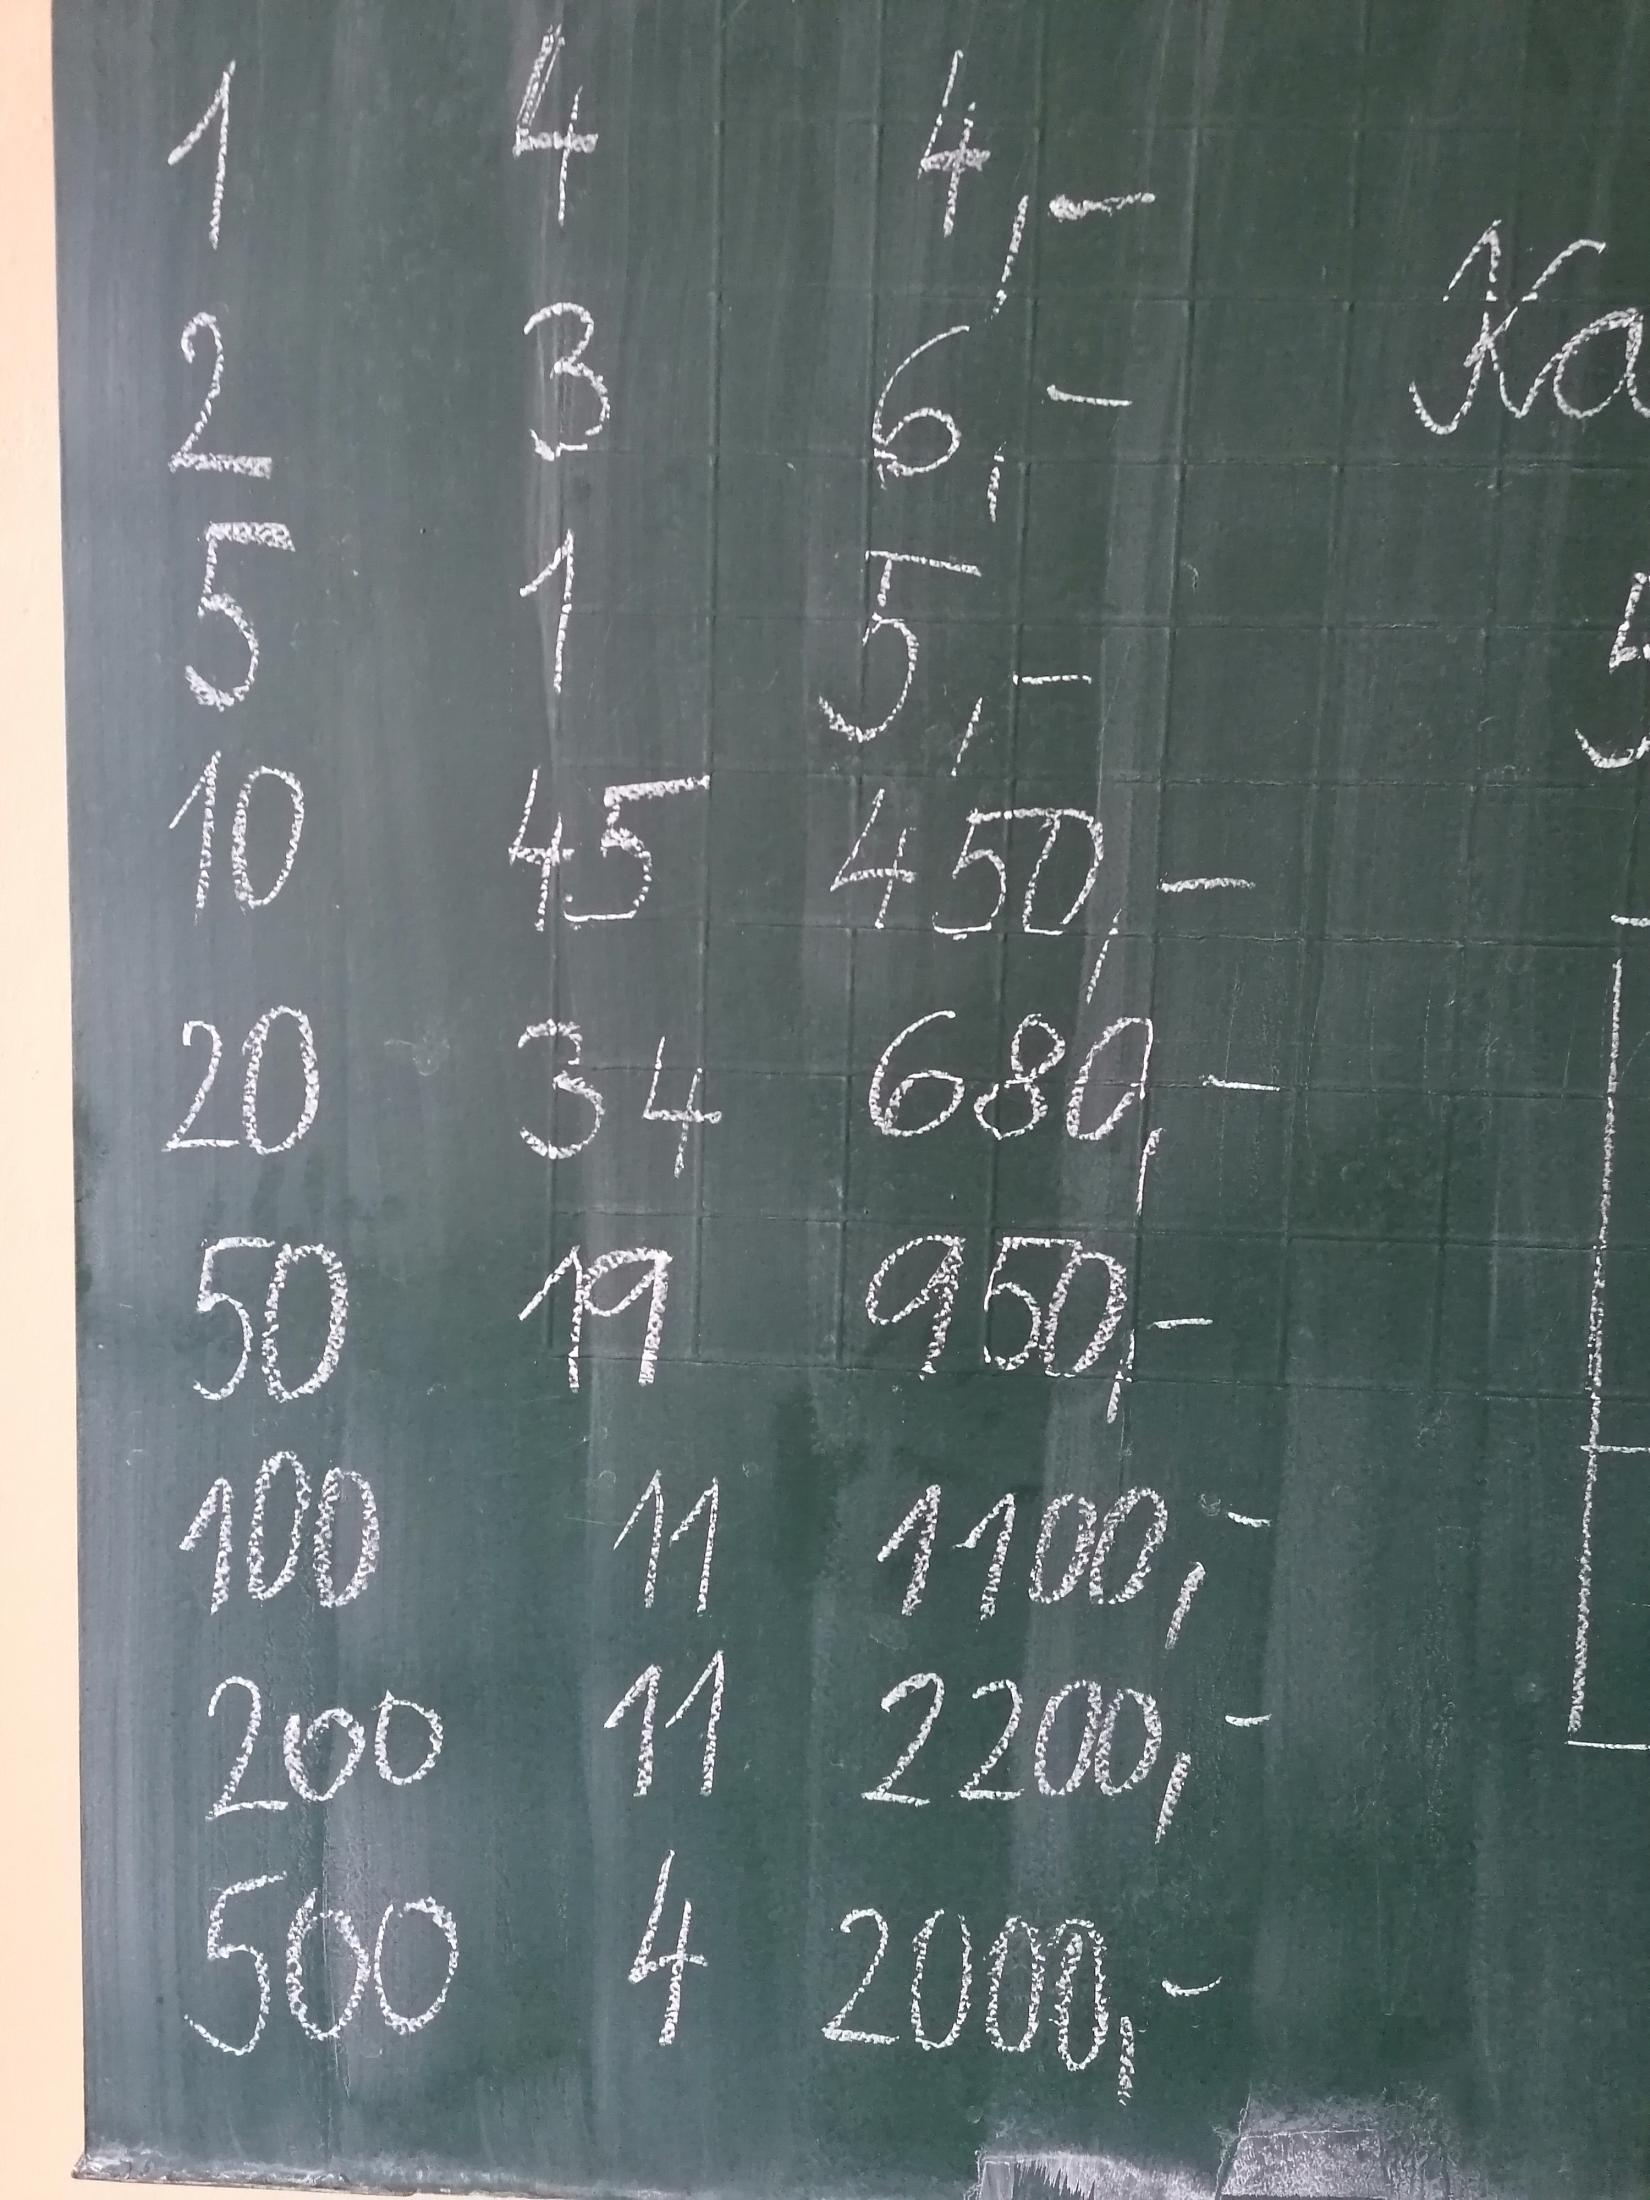 1 4 4,-
2 3 6,-
Ka
5 1 5,-
10 45 450,-
20 34 680,-
50 19 950,-
100 11 1100,-
200 11 2200,-
500 4 2000,-